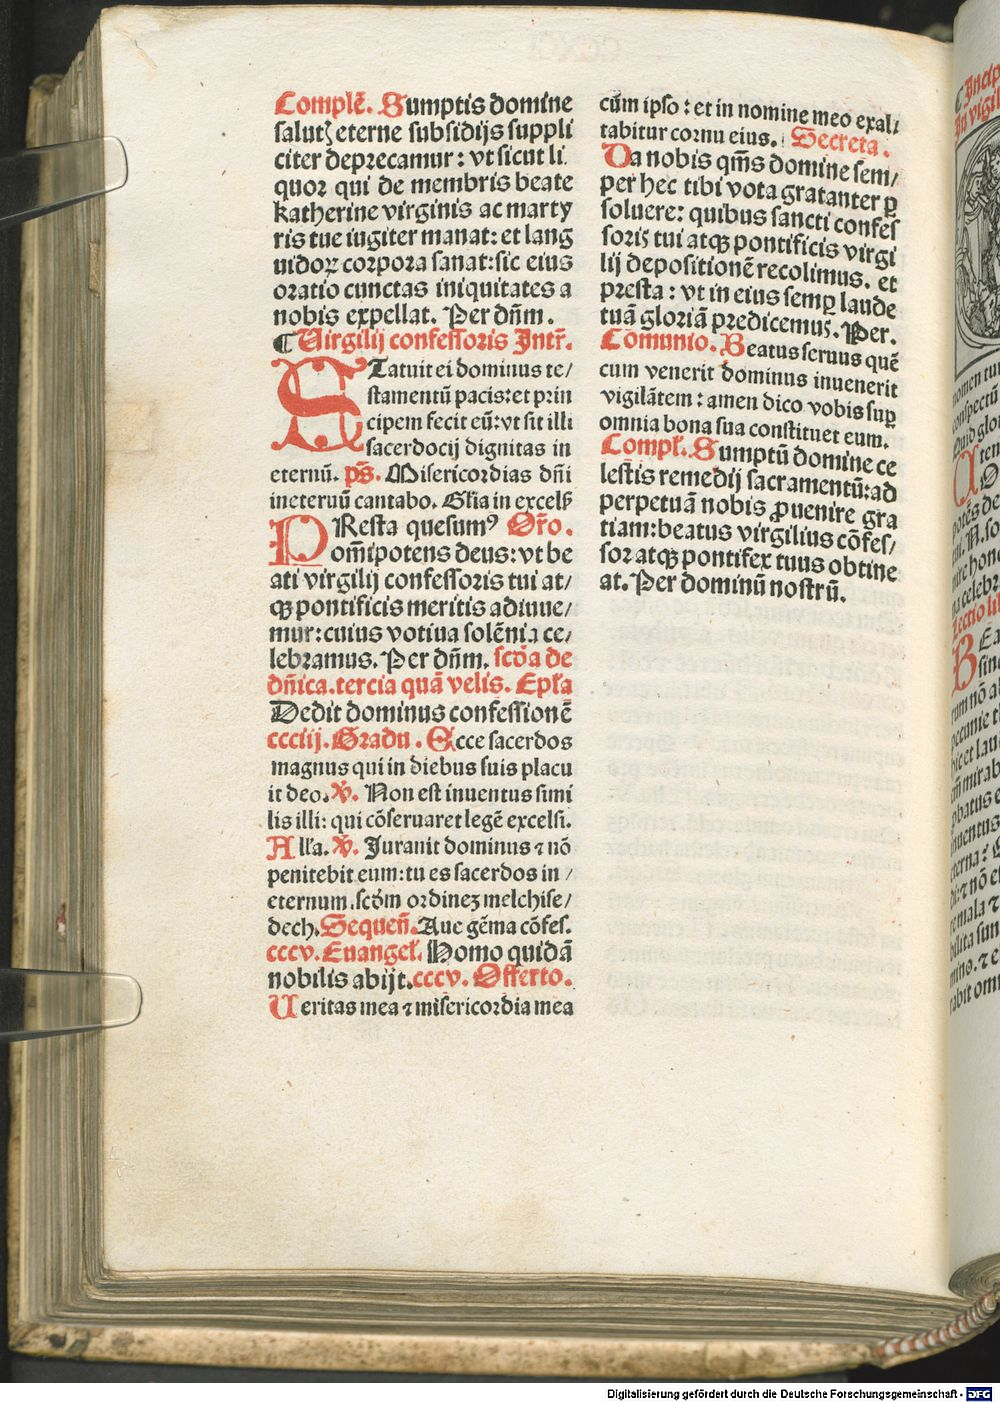 Complē. Sumptis domine
salutꝫ eterne subsidijs suppli
citer deprecamur: vt sicut li
quor qui de membris beate
katherine virginis ac marty
ris tue iugiter manat: et lang
uidoꝝ corpora sanat: sic eius
oratio cunctas iniquitates a
nobis expellat. Per dn̄m.
¶ Virgilij confessoris Intr̄.
STatuit ei dominus te/
stamentū pacis: et prin
cipem fecit eū: vt sit illi
sacerdocij dignitas in
eternū. ps̄. Misericordias dn̄i
in eternū cantabo. Glīa in excelß
PResta quesumꝰ Or̄o.
om̄ipotens deus: vt be
ati virgilij confessoris tui at/
qꝫ pontificis meritis adiuue/
mur: cuius votiua solēnia ce/
lebramus. Per dn̄m. scd̄a de
dn̄ica. tercia quā velis. Epła
Dedit dominus confessionē
ccclij. Gradu. Ecce sacerdos
magnus qui in diebus suis placu
it deo. ℣. Non est inuentus simi
lis illi: qui cōseruaret legē excelsi.
Alła. ℣. Iurauit dominus ⁊ nō
penitebit eum: tu es sacerdos in/
eternum. scd̄m ordineꝫ melchise/
dech. Sequen̄. Aue gēma cōfes.
cccv. Euangeł. Homo quidā
nobilis abijt. cccv. Offerto.
Ueritas mea ⁊ misericordia mea
cūm ipso: et in nomine meo exal/
tabitur cornu eius. Secreta.
Da nobis qm̄s domine sem/
per hec tibi vota gratanter ꝑ
soluere: quibus sancti confes
soris tui atqꝫ pontificis virgi
lij depositionē recolimus. et
presta: vt in eius semꝑ laude
tuā gloriā predicemus. Per.
Cōmunio. Beatus seruus quē
cum venerit dominus inuenerit
vigilātem: amen dico vobis suꝑ
omnia bona sua constituet eum.
Compł. Sumptū domine ce
lestis remedij sacramentū: ad
perpetuā nobis ꝓuenire gra
tiam: beatus virgilius cōfes/
sor atqꝫ pontifex tuus obtine
at. Per dominū nostrū.
Digitalisierung gefördert durch die Deutsche Forschungsgemeinschaft - DFG